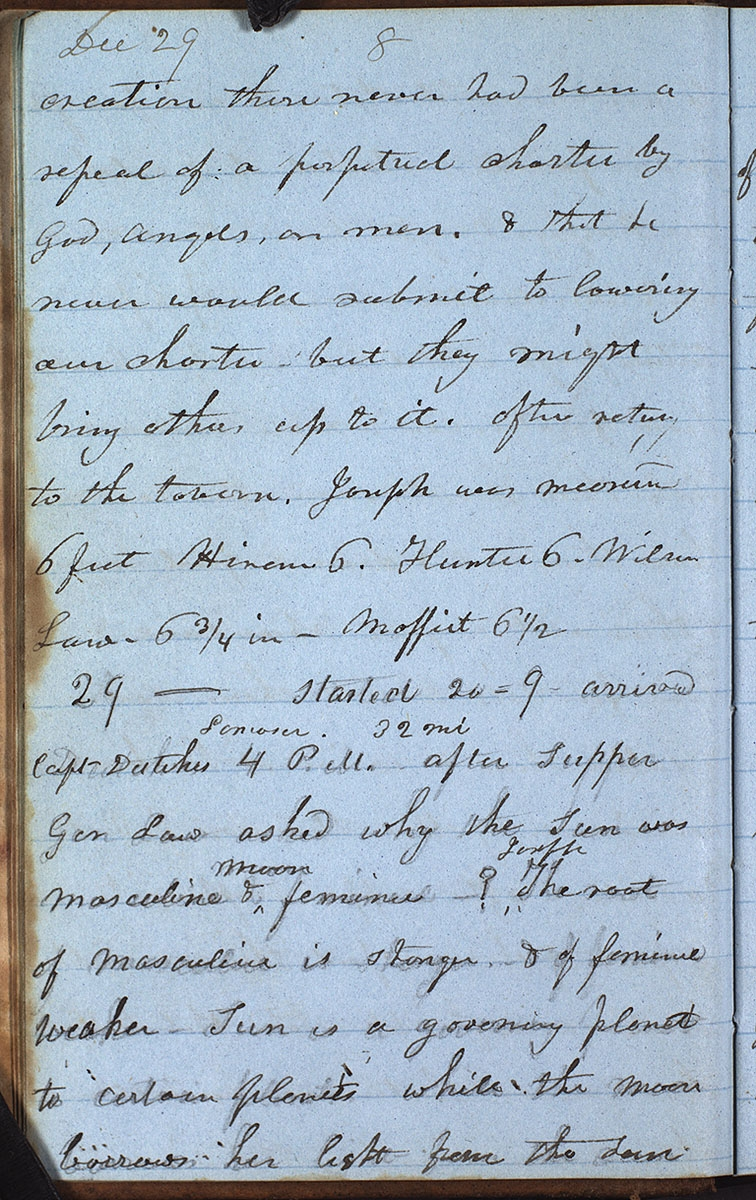 Dec 29 8
creation there never had been a
repeal of a perpetual charter by
God, angels, or men. & that he
never would submit to lowering
our charter but they might
bring others up to it. after return
to the tavern. Joseph was measured
6 feet Hiram 6. Hunter 6. Wilson
Law- 6 3/4 in - Moffit 6 1/2
29 — started 20 = 9 - arrived
32 mi
Capt Dutches 4 P.M. after supper
Gen Law asked why the Sun was
moon Joseph
masculine & feminine -? The root
of masculine is stonger & of feminine
weaker - Sun is a govening planet
to certain planets while the moon
borrows her light from the sun